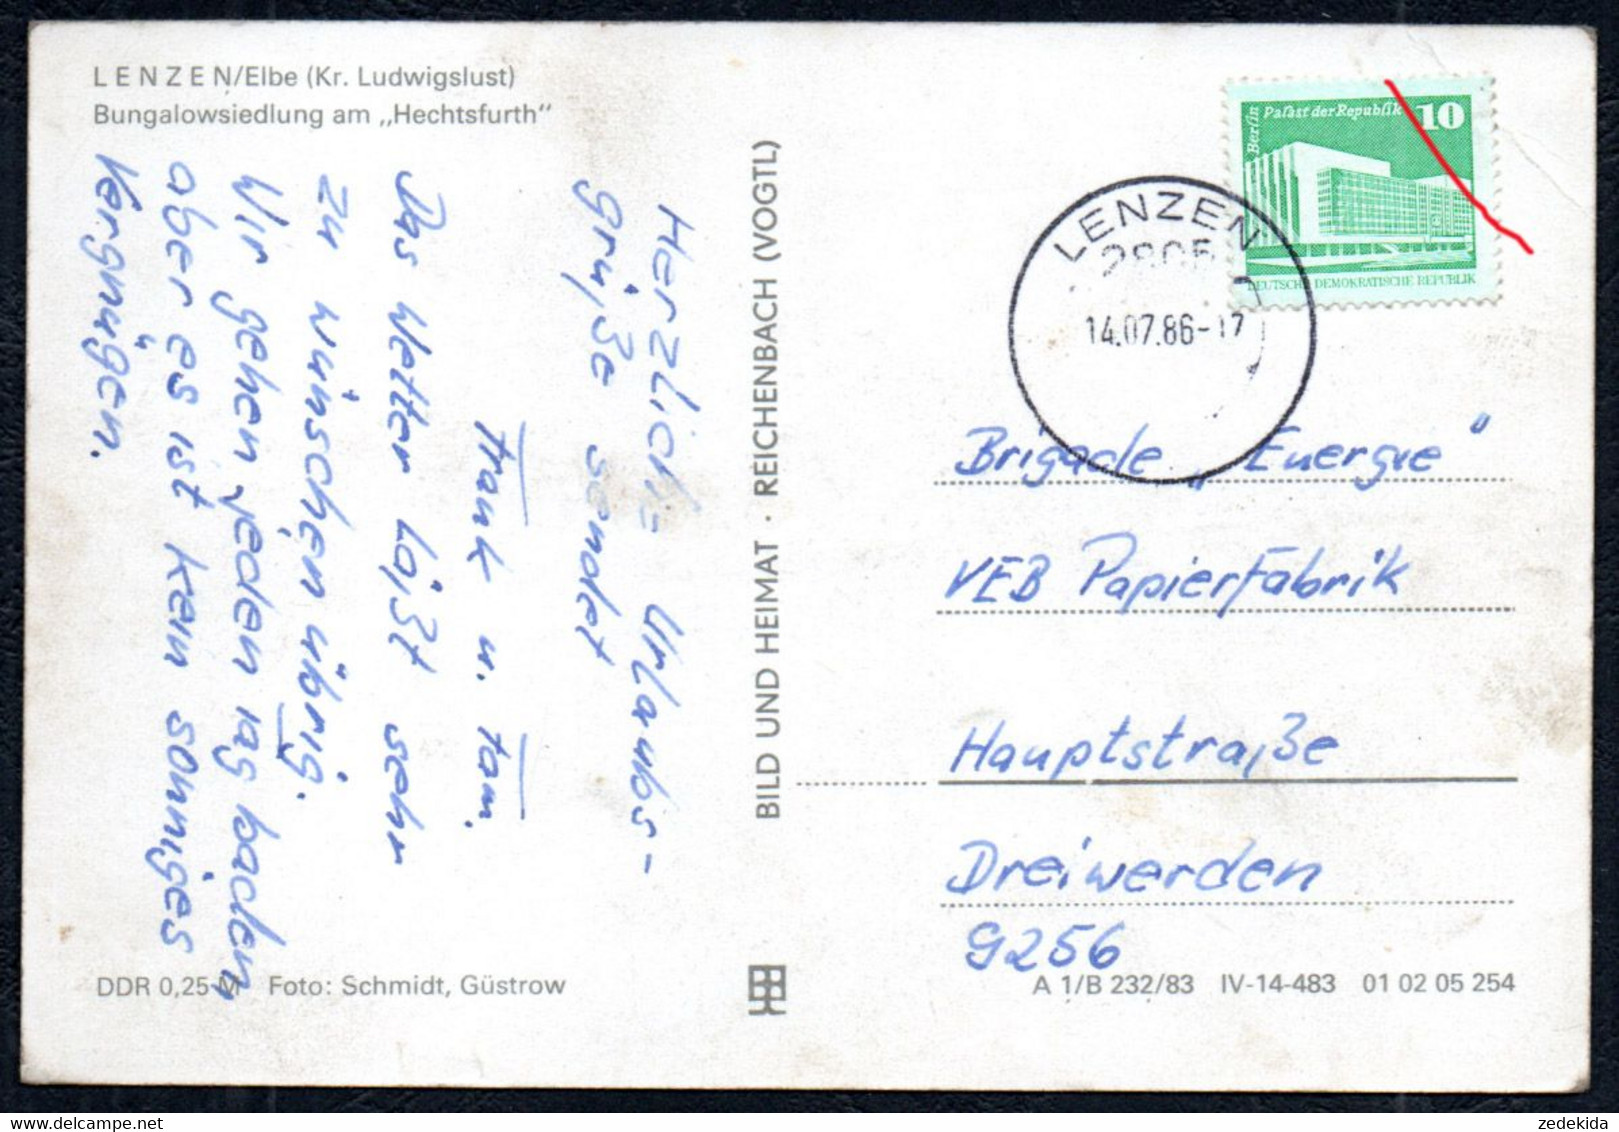 LENZEN/Elbe (Kr. Ludwigslust)
Bungalowsiedlung am „Hechtsfurth"
Herzliche Urlaubs-
grüße sendet
Frank u. Fam.
Das Wetter läßt sehr
zu wünschen übrig.
Wir gehen jeden Tag baden,
aber es ist kein sonniges
Vergnügen.
BILD UND HEIMAT · REICHENBACH (VOGTL)
Berlin Palast der Republik 10
DEUTSCHE DEMOKRATISCHE REPUBLIK
LENZEN
2805
14.07.86-17
Brigade „Energie"
VEB Papierfabrik
Hauptstraße
Dreiwerden
9256
DDR 0,25 M Foto: Schmidt, Güstrow
A 1/B 232/83 IV-14-483 01 02 05 254
zedekida